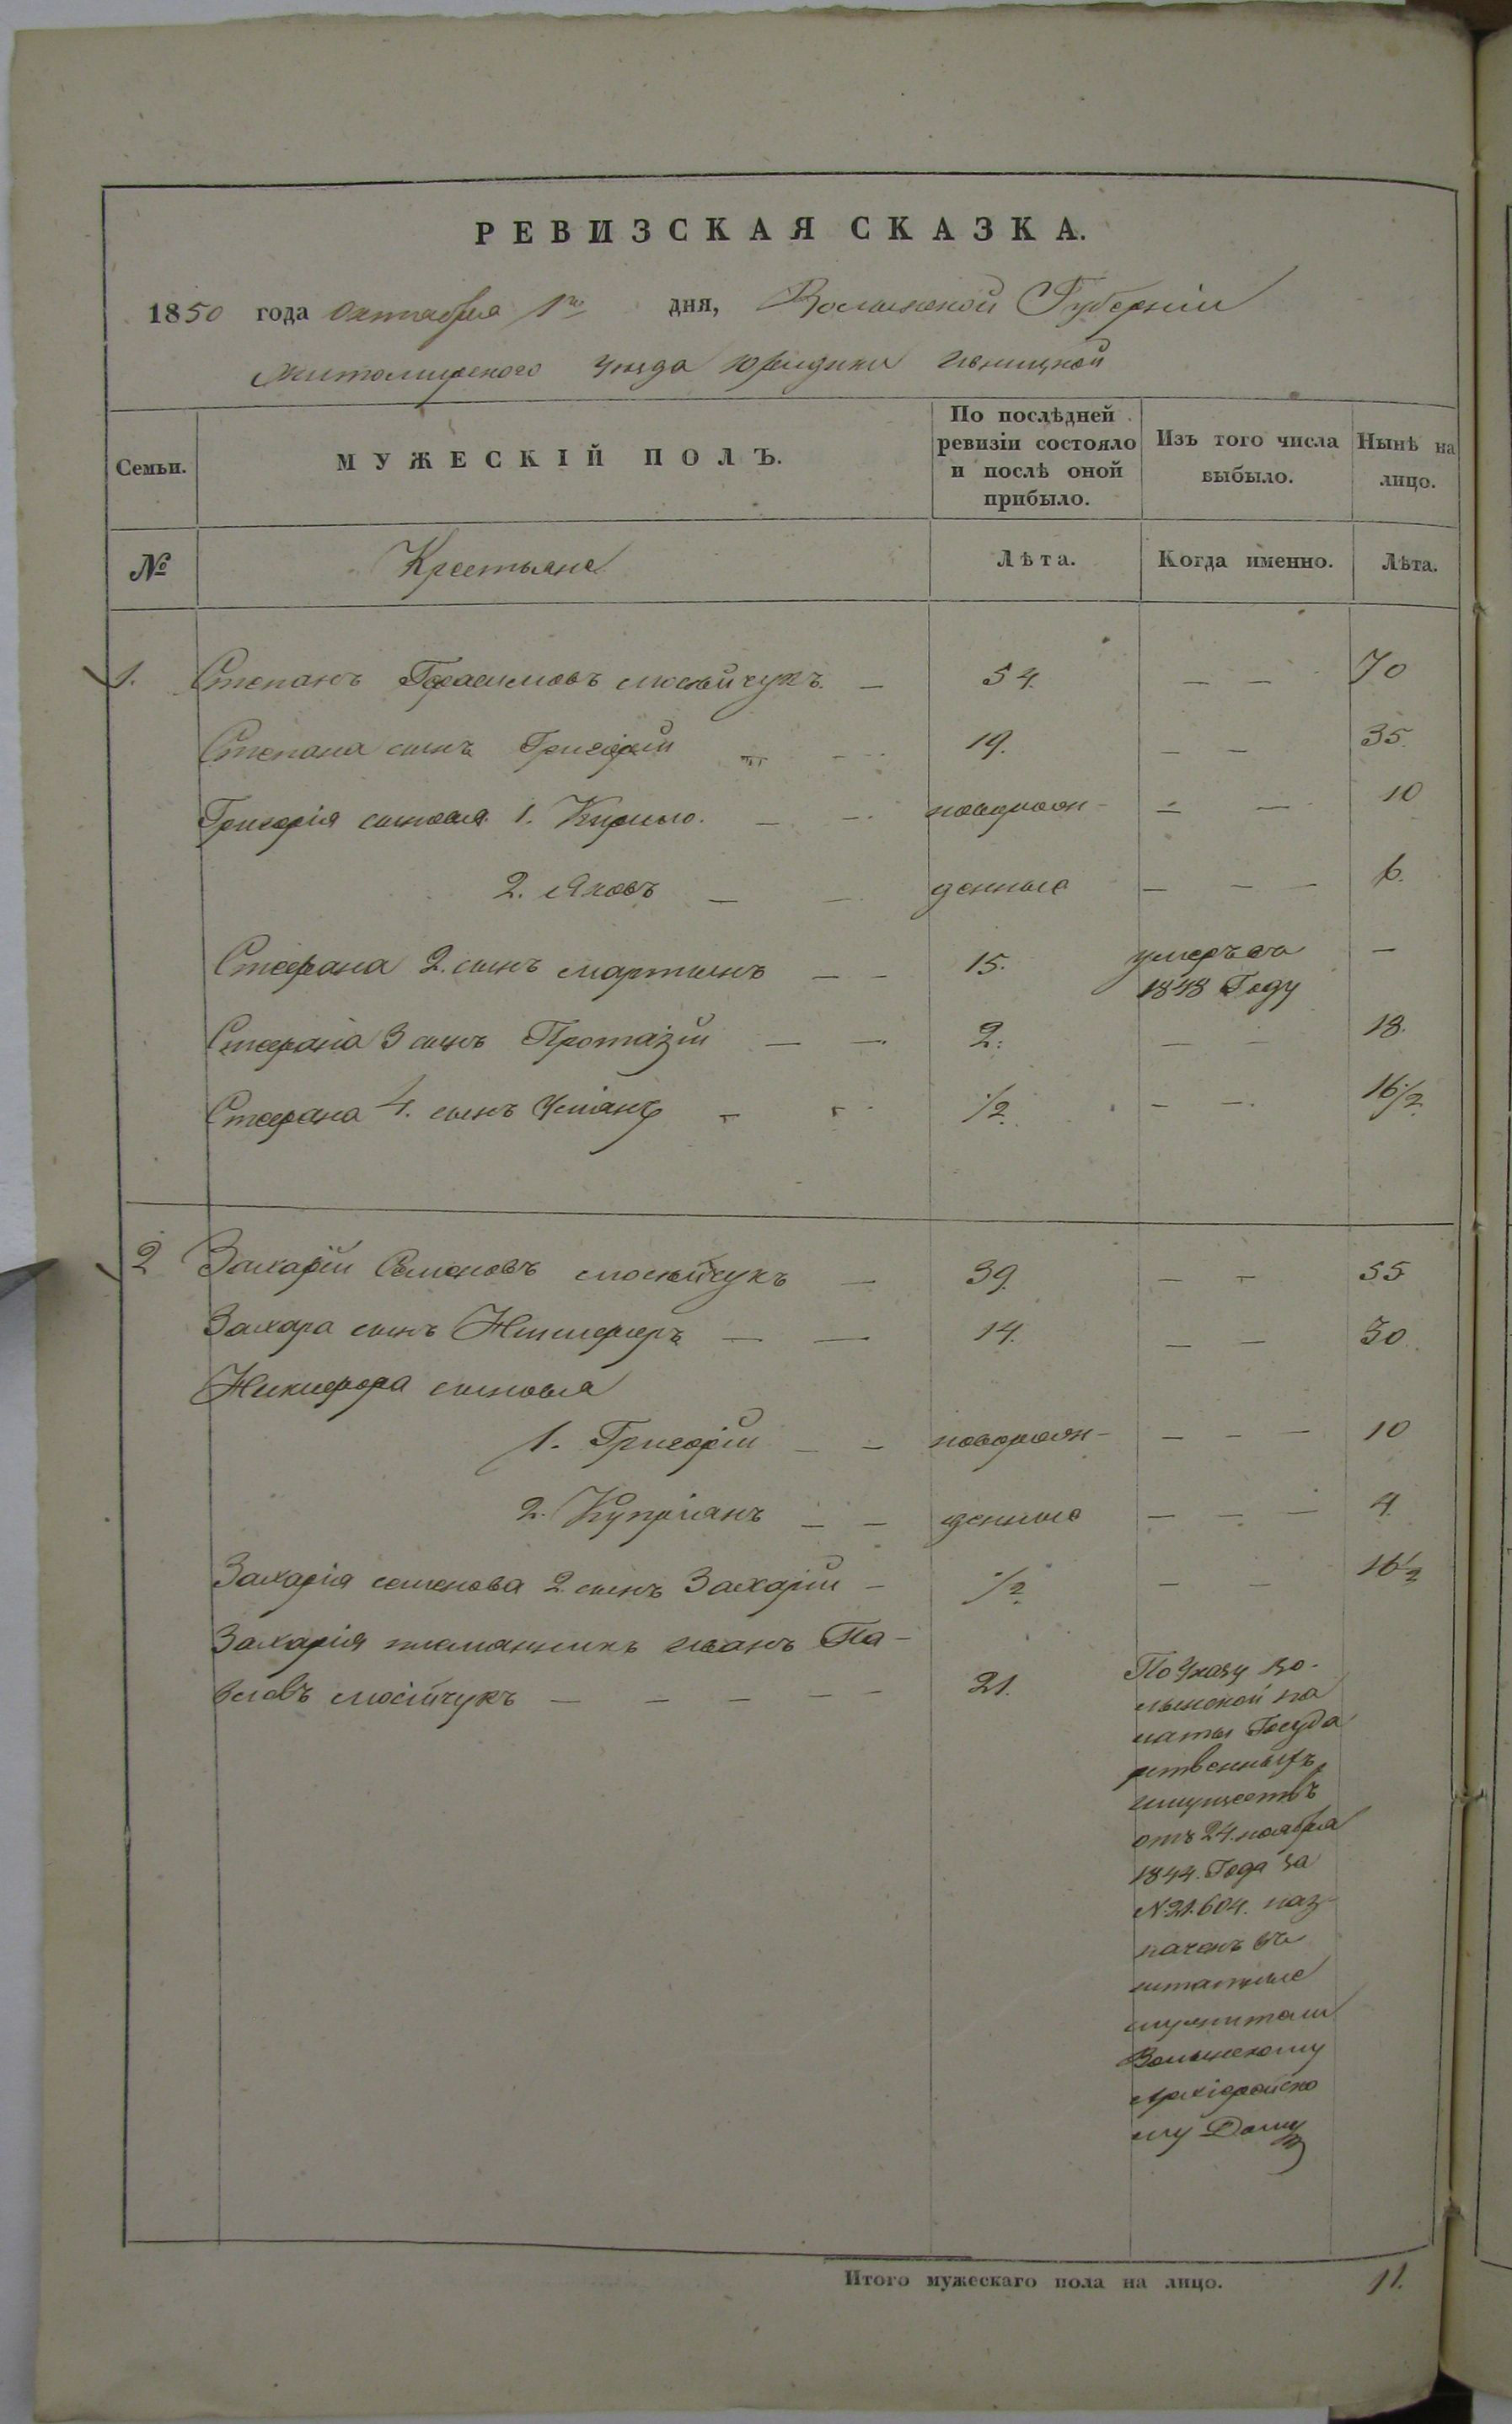 РЕВИЗСКАЯ СКАЗКА.
1850 года Октября 1го дня, Волынской Губерніи
Житомирского Уезда Юридики
Семьи.
МУЖЕСКІЙ ПОЛЪ.
По послѣдней ревизіи состояло и послѣ оной прибыло.
Изъ того числа выбыло.
Нынѣ на лицо.
№
Крестьяне
Лѣта.
Когда именно.
Лѣта.
1. Степанъ Герасимовъ Мосейчукъ. — 54. — — 70
Степана сынъ Григорій — — 19. — — 35.
Григорія сыновья 1. Кирило. — — новорож- — — 10
2. Яковъ — — денные — — — 6.
Стефана 2. сынъ Мартынъ — — 15. умеръ въ —
1848 Году
Стефана 3 сынъ Протазій — — 2. — — 18.
Стефана 4. сынъ — — 1/2. — — 16 1/2
2 Захарій Семеновъ Мосейчукъ — 39. — — 55
Захара сынъ Никиферъ — — 14. — — 30
Никифора сыновья
1. Григорій — — новорож- — — — 10
2. Купріанъ — — денные — — — 4.
Захарія Семенова 2. сынъ Захарій — 1/2 — — 16 1/2
Захарія племянникъ Иванъ Па-
вловъ Мосійчукъ — — — — — 21. По Указу Во-
лынской па
латы Госуда
рственныхъ
имуществъ
отъ 24. ноября
1844. Года за
№ 21.604. наз-
наченъ въ
штатные
служители
Волынскому
Архіерейско
му Дому
Итого мужескаго пола на лицо. 11.